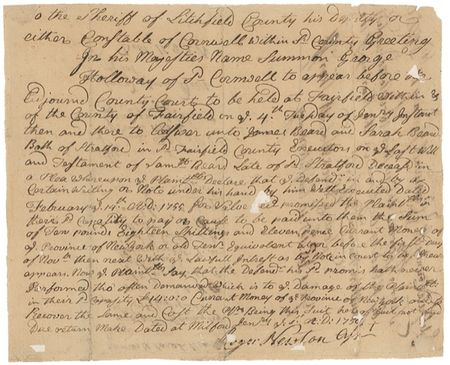 o the Sheriff of Litchfield County his Deputy or
either Constable of Cornwell Within sd County Greeting
In his Majesties Name Summon George
Holloway of sd Cornwell to appear before an
Adjournd County Court to be held at Fairfield within &
of the County of Fairfield on ye 4th Tuesday of Jenry Instant
then and there to Answer unto James Beard and Sarah Beard
Both of Stratford in sd Fairfield County Executors on ye Last Will
and Testament of Samll Beard Late of sd Stratford Decease in
a Plea whereupon ye Plaintifs Declare that ye Defendt in and by a
Certain Writing or Note under his hand by him Well Executed Dated
February 14th AD: 175 for Value promised the Plaint in
their sd Capasity to pay or cause to be paid unto them the Sum
of Ten pounds Eighteen Shillings and Eleven pence Currant Money of
ye Province of New York or old Tenr Equivalent at or before the first Day
of Novr then next With ye Lawfull Intrest as by Note in Court to be
appears Now ye Plaintifs Say that the Defendt his sd promis hath never
performed tho often demanded which is to ye Damage of the
in their sd Capasity Currant Money of ye Province of New York and to
Recover the Same and Cost the Being this Suit hereof fail not and
Due return Make Dated at Milford Jenry AD: 175
Roger Newton